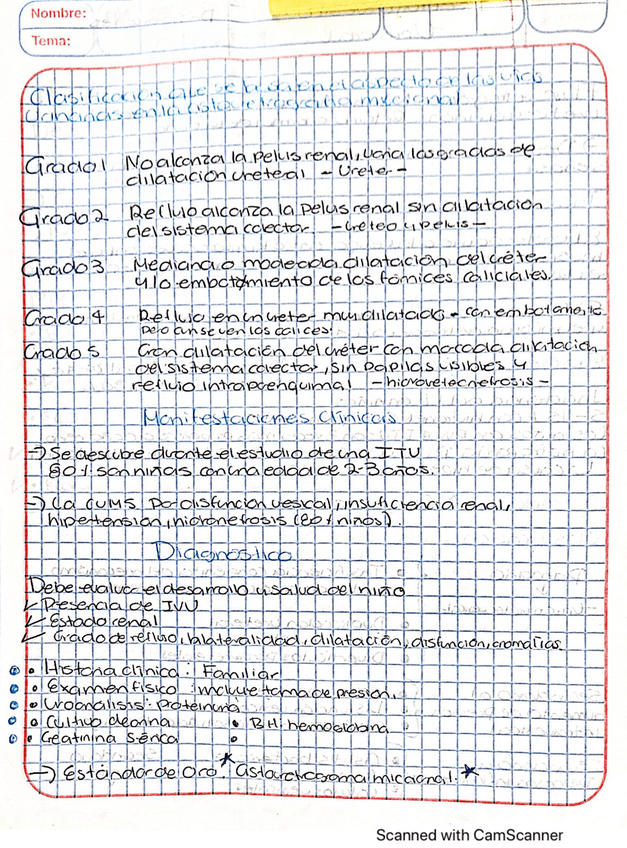 Nombre:
Tema:
Clasificación que se basa en el aspecto en las vías
urinarias en la cistouretrografía miccional
Grado 1 No alcanza la pelvis renal, varia los grados de
dilatación ureteral - Ureter -
Grado 2 Reflujo alcanza la pelvis renal sin dilatación
del sistema colector. - Uréteo y pelvis -
Grado 3 Mediana o moderada dilatación del uréter
y/o embotamiento de los fórnices caliciales.
Grado 4 Reflujo en un ureter muy dilatado - con embotamiento
pero aun se ven los cálices.
Grado 5 Gran dilatación del uréter con marcada dilatación
del sistema colector, sin papilas visibles y
reflujo intraparenquimal -
Manifestaciones Clínicas
→ Se descubre durante el estudio de una ITU
80% son niñas con una edad de 2-3 años.
→ La CUMS por disfunción vesical, insuficiencia renal,
hipertensión, hidronefrosis (80% niños).
Diagnostico
Debe evaluar el desarrollo y salud del niño
Presencia de IVU
Estado renal
Grado de reflujo, bilateralidad, dilatación, disfunción,
• Historia clínica: Familiar
• Examen físico: incluye toma de presión.
• Uroanálisis: Proteinuria
• Cultivo de orina • BH: hemoglobina
• Creatinina Sérica •
→ Estándar de Oro * miccional. *
Scanned with CamScanner